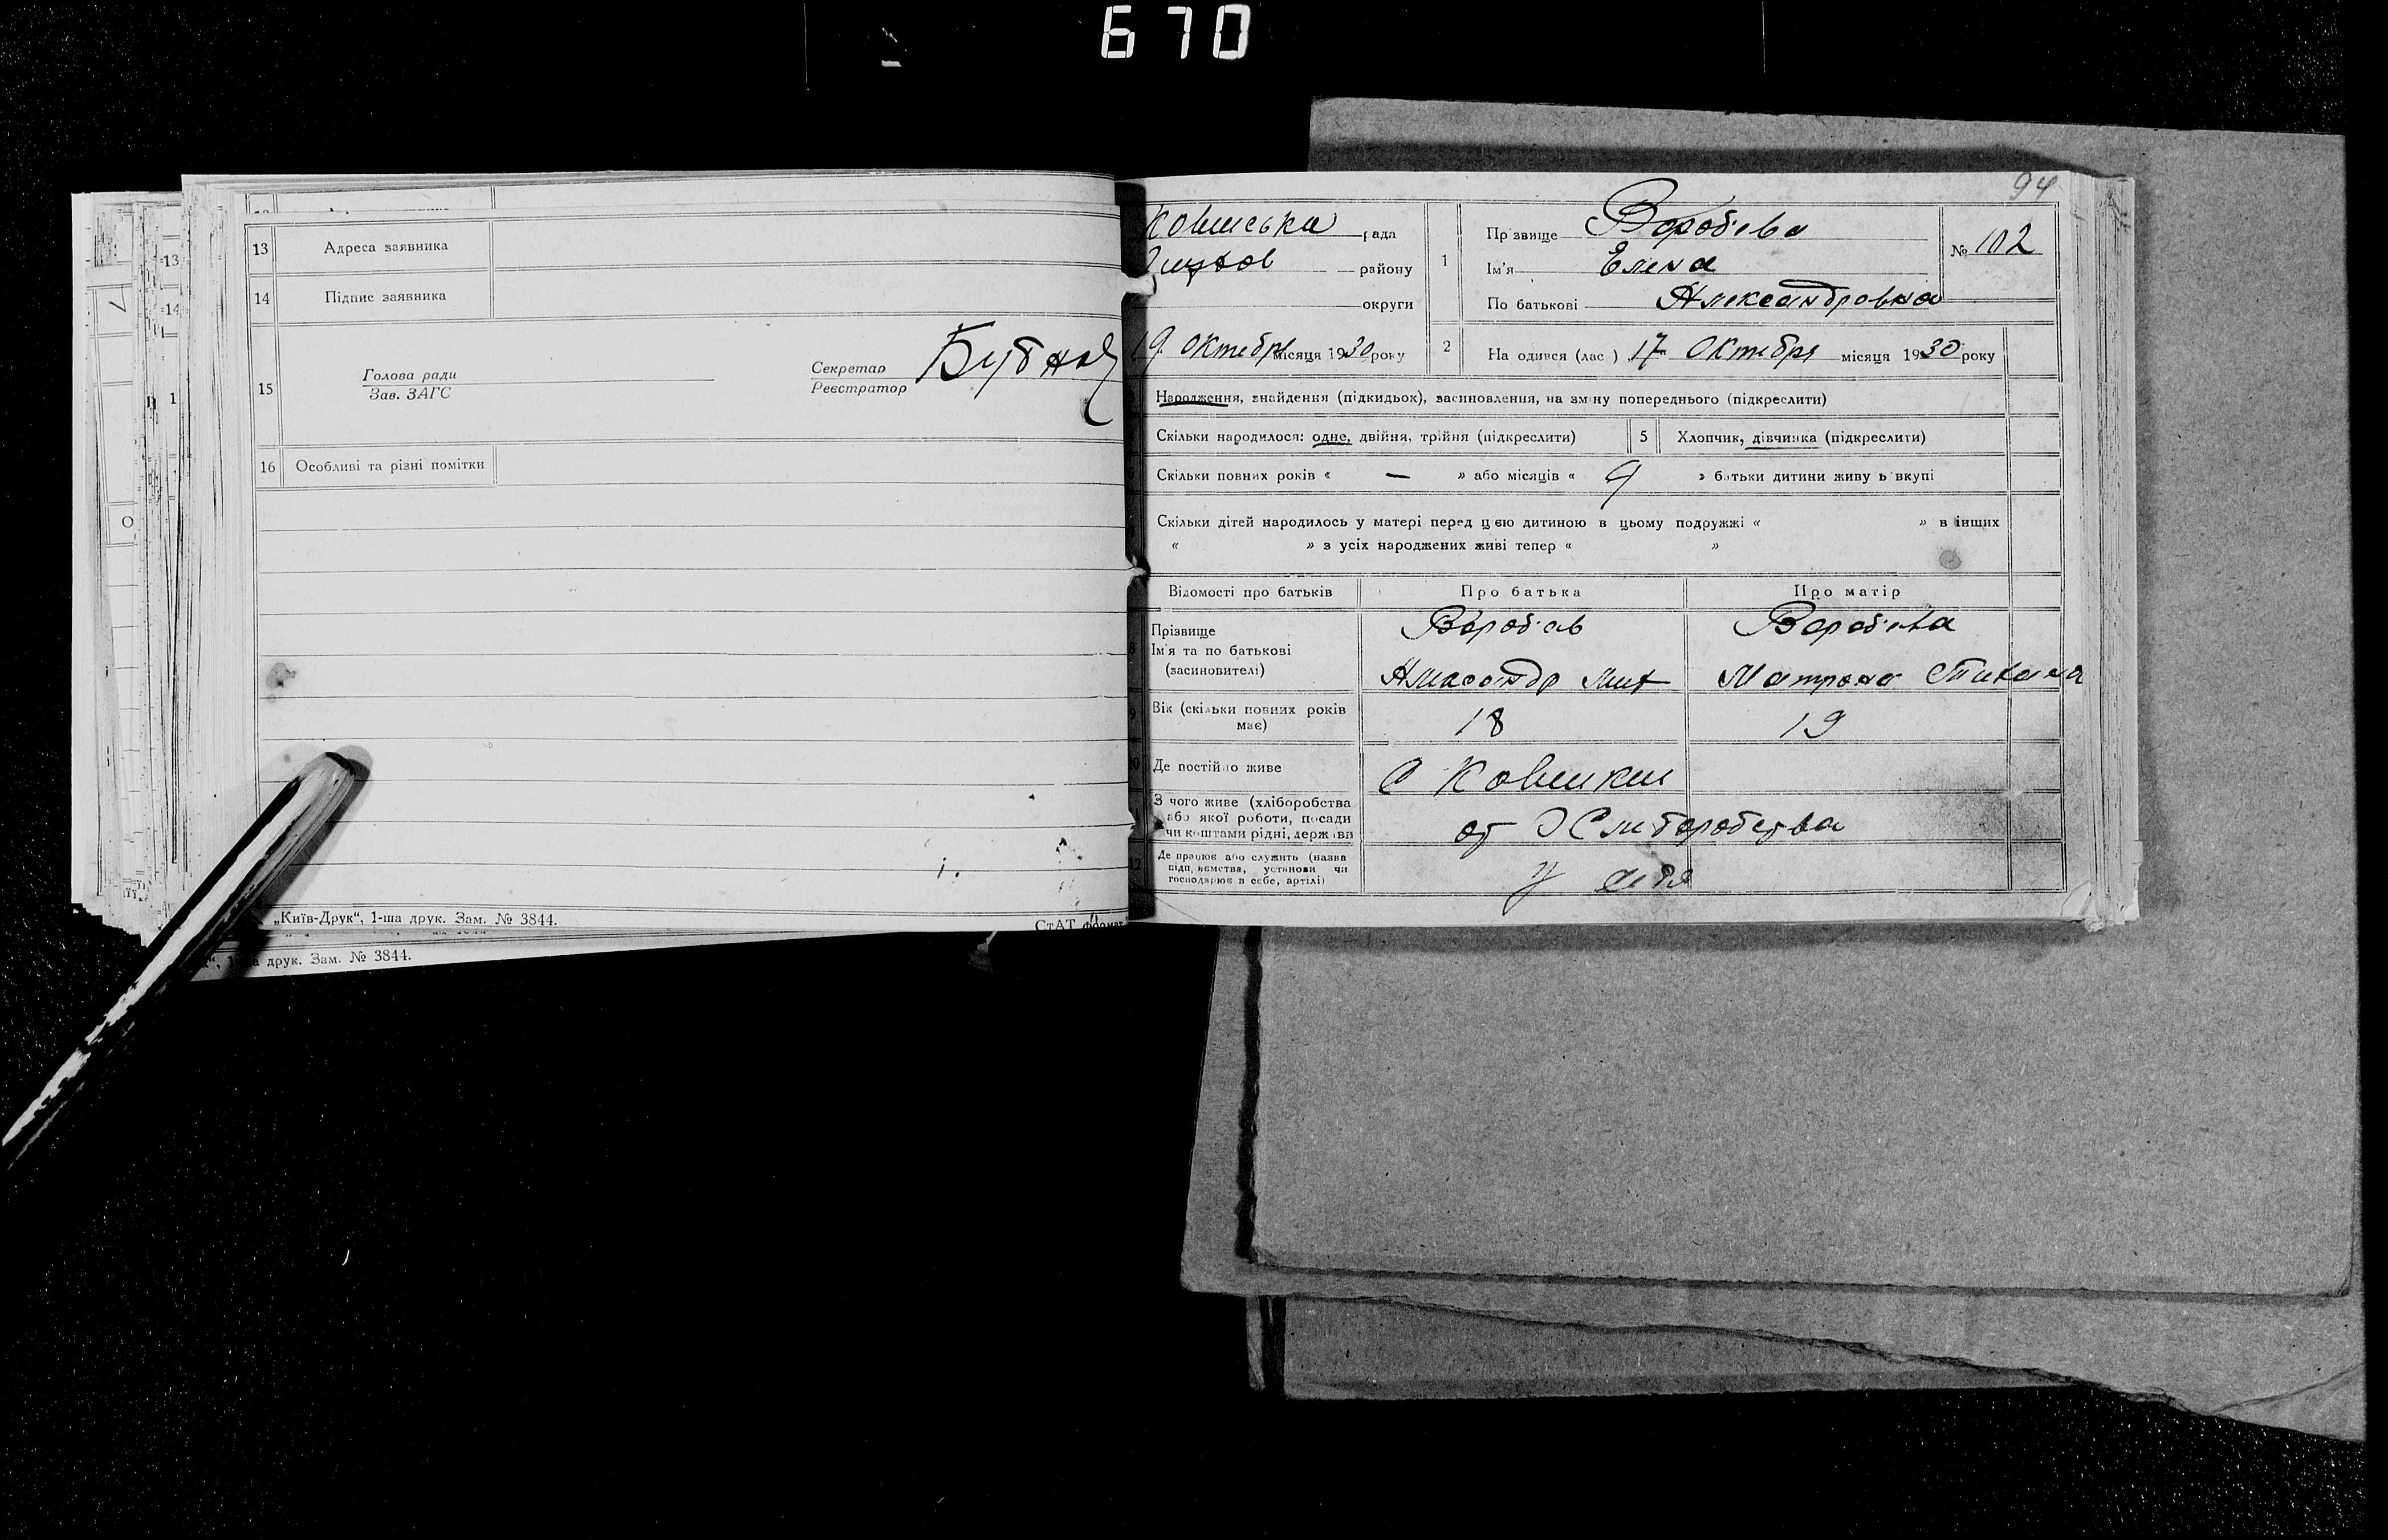 670
13 Адреса заявника
14 Підпис заявника
15 Голова ради
Зав. ЗАГС
Секретар
Реєстратор
16 Особливі та різні помітки
„Київ-Друк“, 1-ша друк. Зам. № 3844.
СтАТ формат
друк. Зам. № 3844.
94
рада
району
округи
9 Октебря місяця 1930 року
1 Прізвище Воробьева
Ім'я Елена
По батькові Александровна
№ 102
2 Народився (лась) 17 Октебря місяця 1930 року
Народження, знайдення (підкидьок), засиновлення, на зміну попереднього (підкреслити)
Скільки народилося: одне, двійня, трійня (підкреслити) 5 Хлопчик, дівчинка (підкреслити)
Скільки повних років « — » або місяців « 9 » батьки дитини живуть вкупі
Скільки дітей народилось у матері перед цією дитиною в цьому подружжі « » в інших
« » з усіх народжених живі тепер « »
Відомості про батьків Про батька Про матір
Прізвище
Ім'я та по батькові
(засиновителі)
Воробьев Воробьева
Александр Мих Матрона
Вік (скільки повних років має) 18 19
Де постійно живе С
З чого живе (хліборобства
або якої роботи, посади
чи коштами рідні, держави
от Хлиборобства
12 Де працює або служить (назва
підприємства, установи чи
господарює в себе, артілі)
У себя